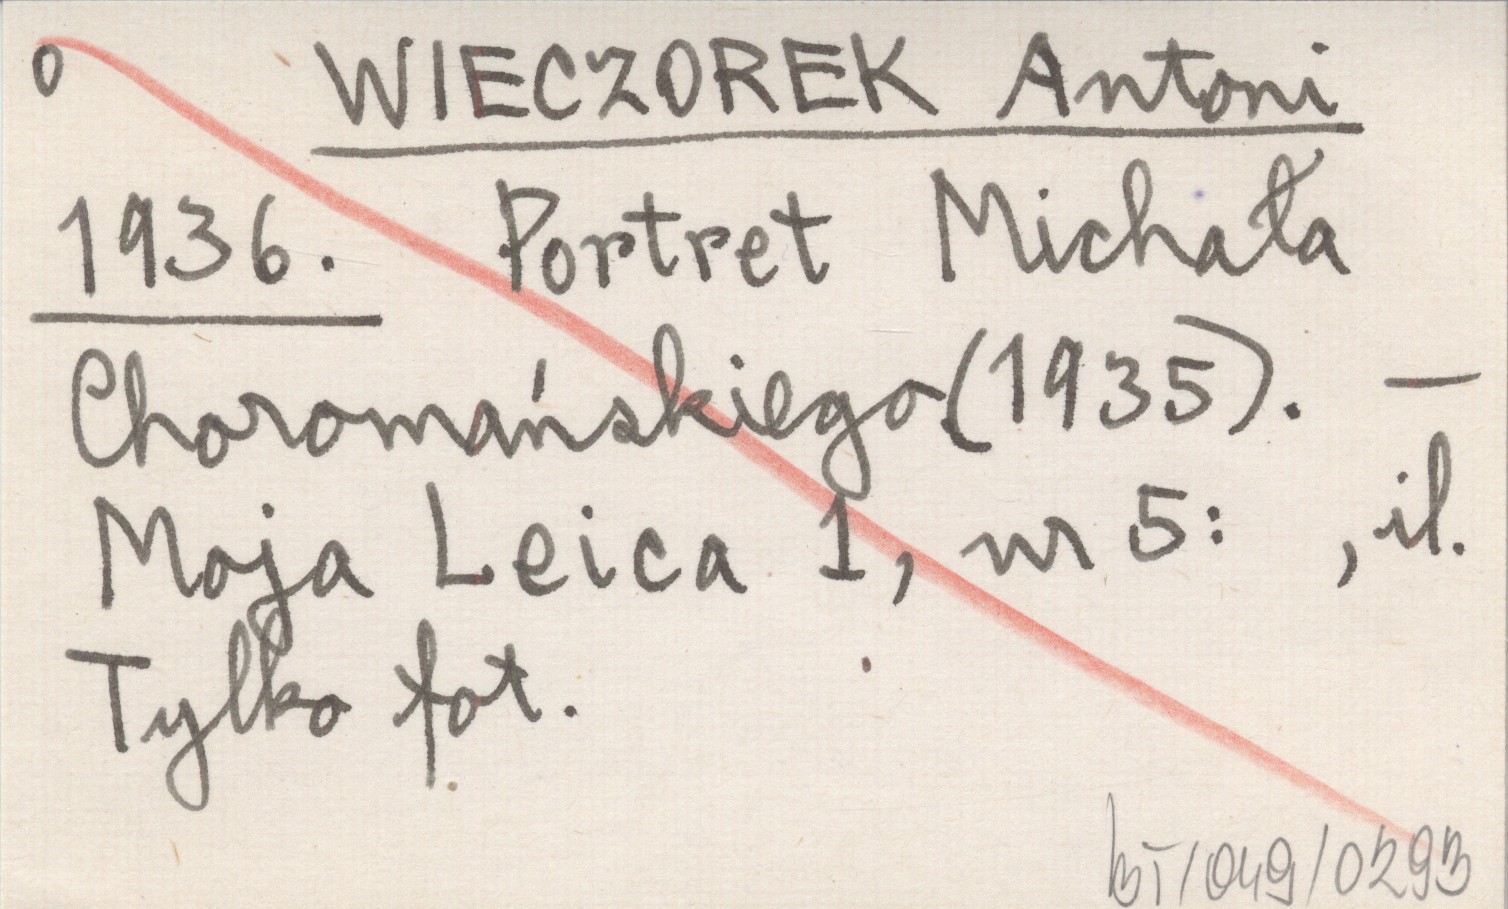 o WIECZOREK Antoni
1936. Portret Michała
Choromańskiego (1935). —
Moja Leica 1, nr 5: , il.
Tylko fot.
BT/049/0293